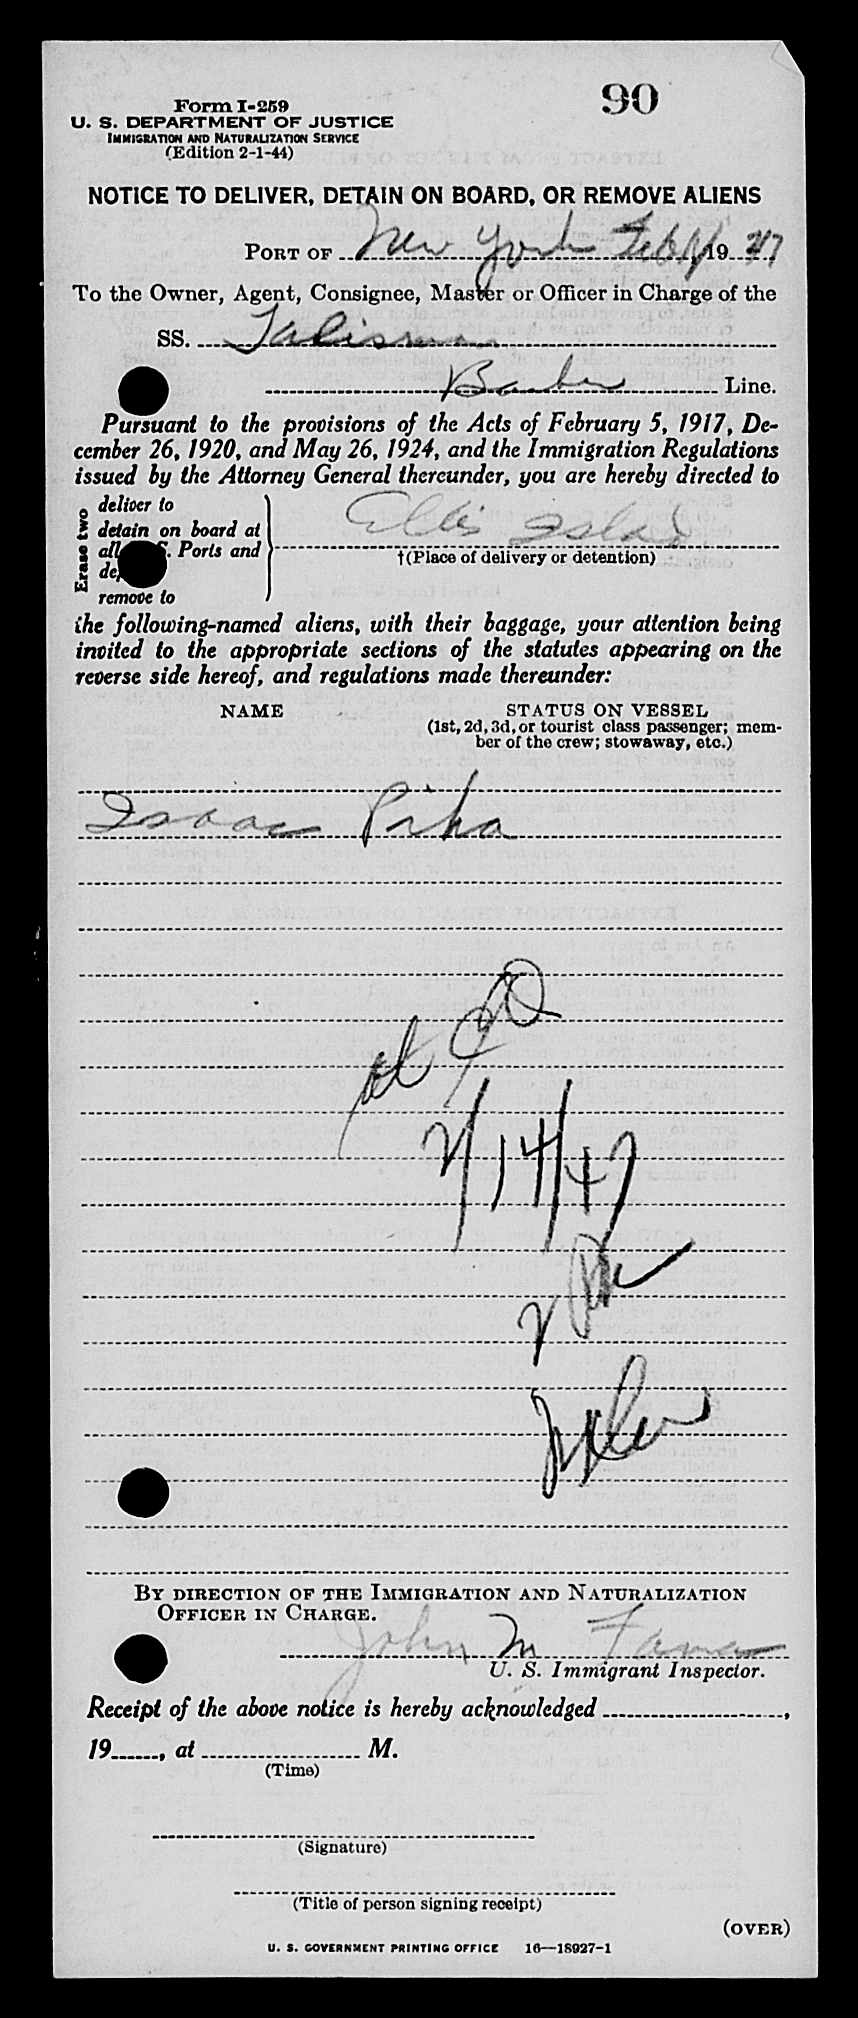 90
Form I-259
U. S. DEPARTMENT OF JUSTICE
IMMIGRATION AND NATURALIZATION SERVICE
(Edition 2-1-44)
NOTICE TO DELIVER, DETAIN ON BOARD, OR REMOVE ALIENS
PORT OF New York Feb 19 47
To the Owner, Agent, Consignee, Master or Officer in Charge of the
SS. Talisman
Barber Line.
Pursuant to the provisions of the Acts of February 5, 1917, De-
cember 26, 1920, and May 26, 1924, and the Immigration Regulations
issued by the Attorney General thereunder, you are hereby directed to
Erase two
deliver to
detain on board at
all S. Ports and
de
remove to
Ellis Island
†(Place of delivery or detention)
the following-named aliens, with their baggage, your attention being
invited to the appropriate sections of the statutes appearing on the
reverse side hereof, and regulations made thereunder:
NAME
STATUS ON VESSEL
(1st, 2d, 3d, or tourist class passenger; mem-
ber of the crew; stowaway, etc.)
Isaac Piha
2/14/47
BY DIRECTION OF THE IMMIGRATION AND NATURALIZATION
OFFICER IN CHARGE.
John M
U. S. Immigrant Inspector.
Receipt of the above notice is hereby acknowledged ,
19 , at M.
(Time)
(Signature)
(Title of person signing receipt)
(OVER)
U. S. GOVERNMENT PRINTING OFFICE 16—18927-1